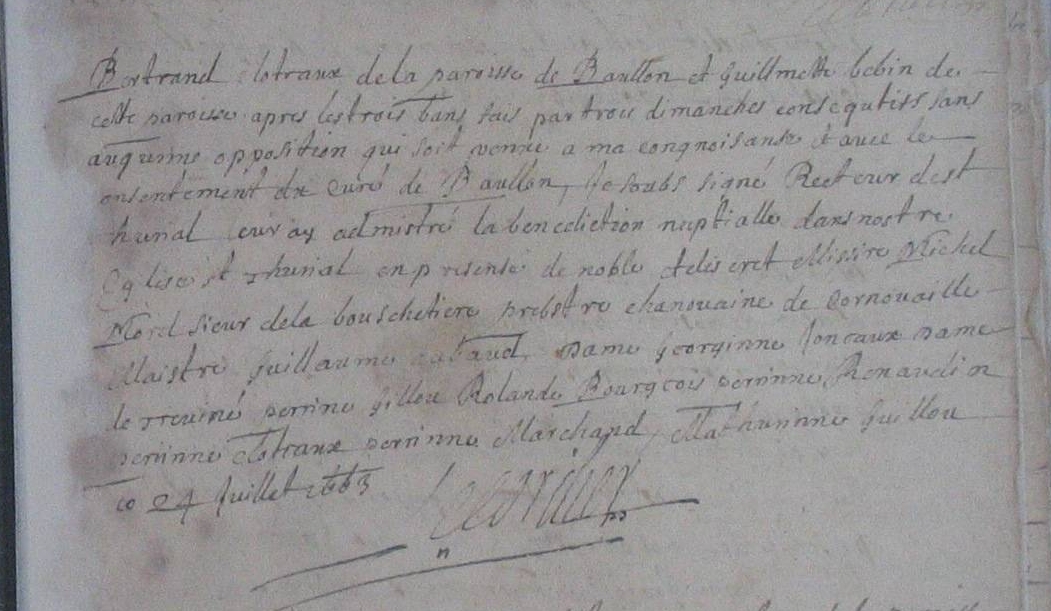 Bertrand Clotraux de la paroisse de Baullon et Guillmette bebin de
cette paroisse apres les trois bans fais par trois dimanches consequtiss sans
auqunne opposition qui soit venue a ma congnoisanse et avec le
onsentement du Curé de Baullon, Je soubs signé Recteur de st
thurial leur ay admistré la benediction nuptialle dans nostre
Eglise st thurial en presense de noble et discret Missire Michel
Morel sieur de la bouschetiere prebstre chanouaine de Cornouaille
Maistre Guillaume dame Georginne Joncaux Dame
le perrine Gillou Rolande Bourgeois perrinne Renaud
perinne Clotraux perrinne Marchand, Mathurinne Guillou
ce 24 Juillet 1663